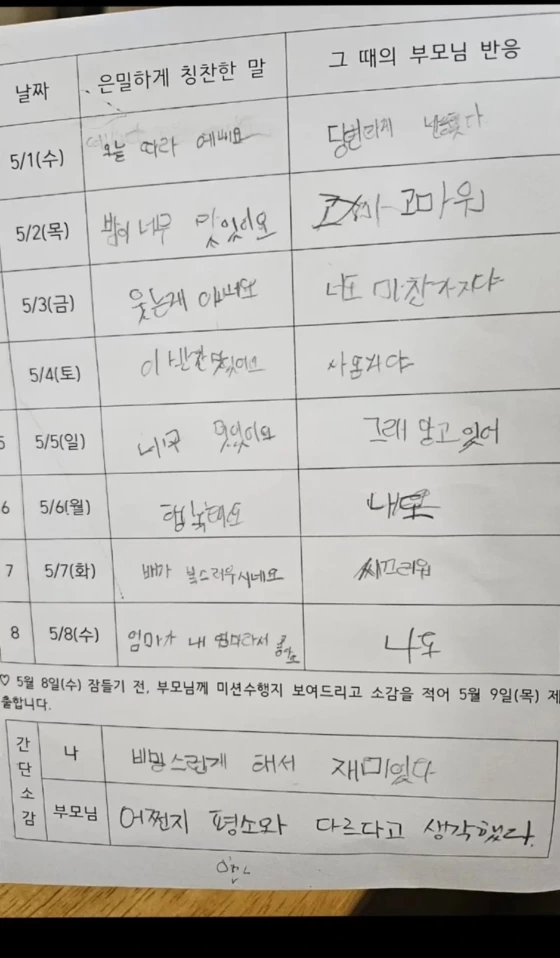 날짜 은밀하게 칭찬한 말 그 때의 부모님 반응
5/1(수) 오늘 따라 예뻐요 당변하게
5/2(목) 밥이 너무 맛있어요 고마워
5/3(금) 웃는게 너도 마찬가지야
5/4(토) 이 맛있어요
5 5/5(일) 너무 멋있어요 그래 알고 있어
6 5/6(월) 행복해요 내도
7 5/7(화) 배가 시네요 씨끄러워
8 5/8(수) 엄마가 내 엄마라서 나도
♡ 5월 8일(수) 잠들기 전, 부모님께 미션수행지 보여드리고 소감을 적어 5월 9일(목) 제
출합니다.
간단소감
나 비밀스런게 해서 재미있다
부모님 어쩐지 평소와 다르다고 생각했다.